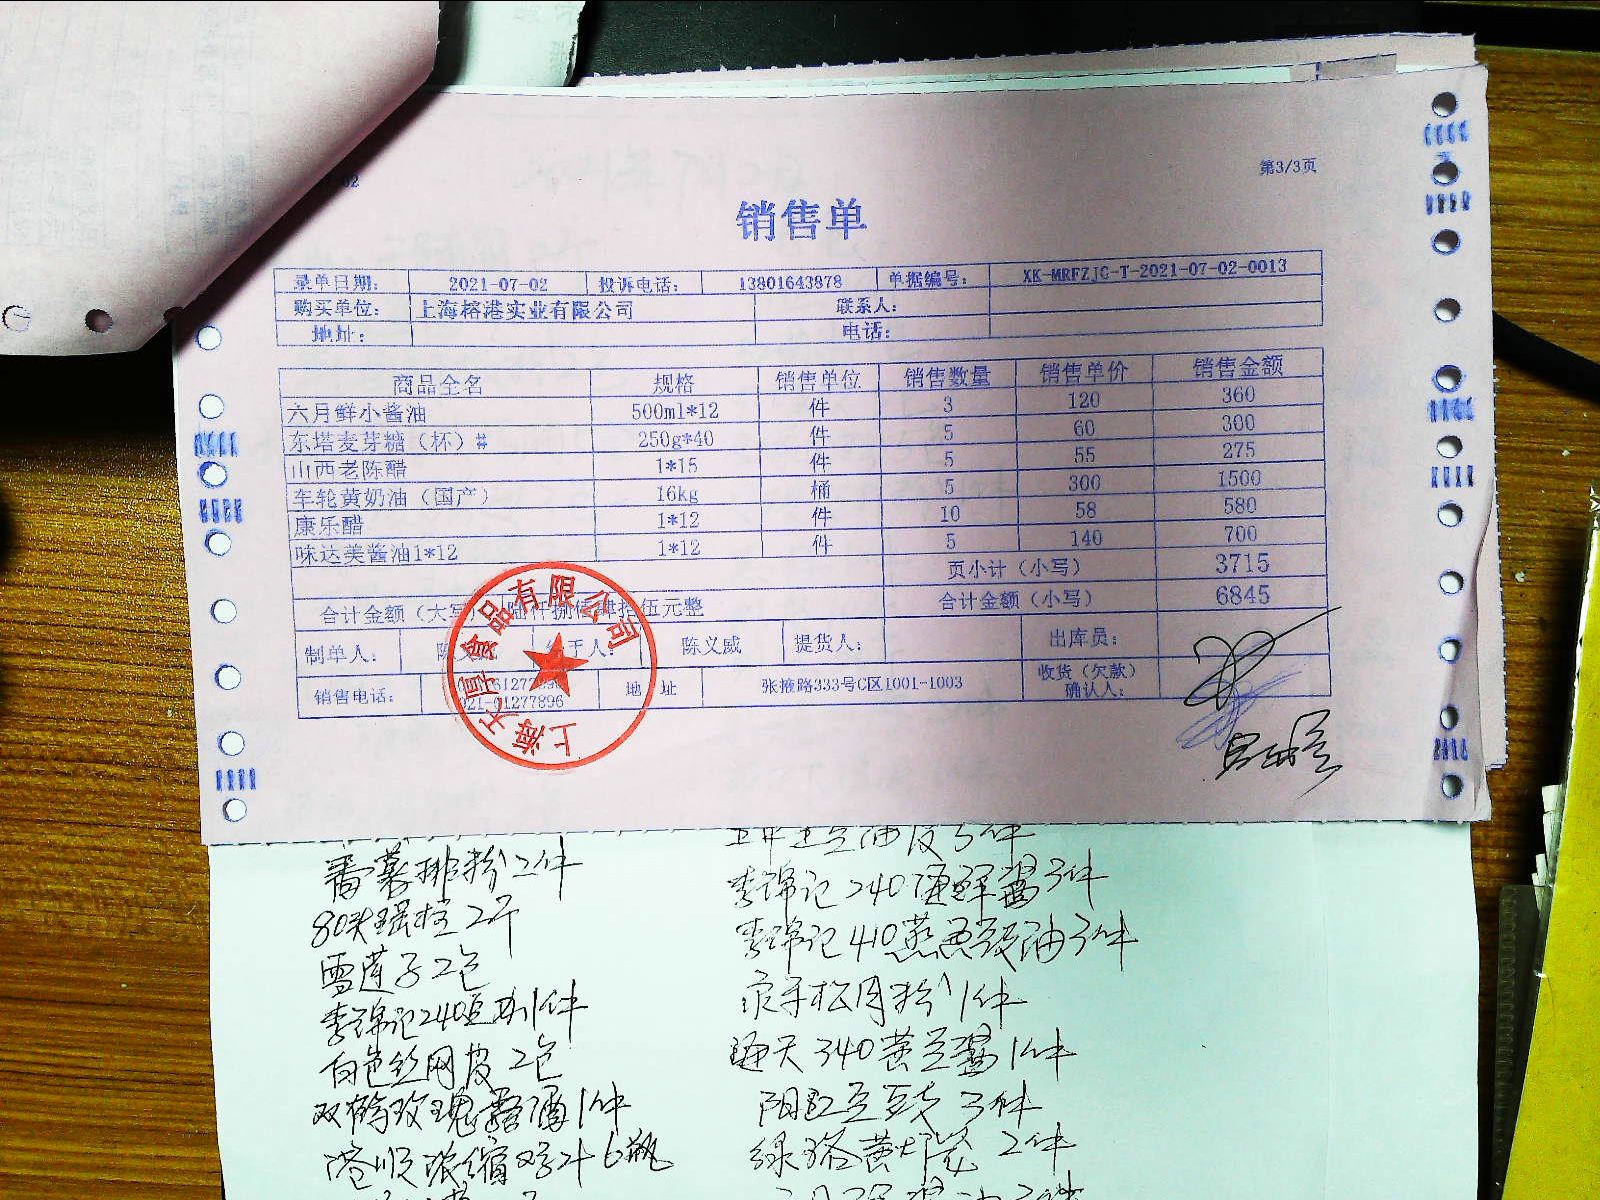 第3/3页
销售单
录单日期: 2021-07-02 投诉电话: 13801643878 单据编号: XK-MRFZJC-T-2021-07-02-0013
购买单位: 上海榕港实业有限公司 联系人:
地址: 电话:
商品全名 规格 销售单位 销售数量 销售单价 销售金额
六月鲜小酱油 500ml*12 件 3 120 360
东塔麦芽糖（杯）# 250g*40 件 5 60 300
山西老陈醋 1*15 件 5 55 275
车轮黄奶油（国产） 16kg 桶 5 300 1500
康乐醋 1*12 件 10 58 580
味达美酱油1*12 1*12 件 5 140 700
页小计（小写） 3715
合计金额（大写） 陆仟捌佰肆拾伍元整 合计金额（小写） 6845
制单人: 陈义威 经手人: 陈义威 提货人: 出库员:
销售电话: 021-61277896 地 址 张掖路333号C区1001-1003 收货（欠款）确认人:
上海天厚食品有限公司
番薯排粉2件
80头瑶柱2斤
雪莲子2包
李锦记240 1件
白色丝网皮2包
双鹤玫瑰露酒1件
港顺浓缩鸡汁6瓶
3件
李锦记240海鲜酱3件
李锦记410蒸鱼豉油3件
1件
海天340黄豆酱1件
阳江豆豉3件
2件